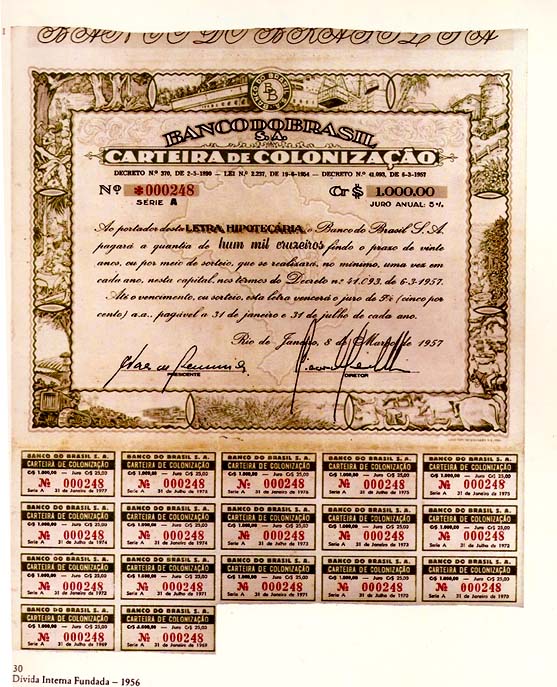 BANCO DO BRASIL S A
BANCO DO BRASIL
BB
BANCO DO BRASIL
S. A.
CARTEIRA DE COLONIZAÇÃO
DECRETO N.º 370, DE 2-5-1890 — LEI N.º 2.237, DE 19-6-1954 — DECRETO N.º 41.093, DE 6-3-1957
Nº *000248 Cr$ 1.000,00
SÉRIE A JURO ANUAL: 5%
Ao portador desta LETRA HIPOTECÁRIA, o Banco do Brasil S. A.
pagará a quantia de hum mil cruzeiros findo o prazo de vinte
anos, ou por meio de sorteio, que se realizará, no mínimo, uma vez em
cada ano, nesta capital, nos termos do Decreto n.º 41.093, de 6-3-1957.
Até o vencimento, ou sorteio, esta letra vencerá o juro de 5% (cinco por
cento) a.a., pagável a 31 de janeiro e 31 de julho de cada ano.
Rio de Janeiro, 8 de Março de 1957
PRESIDENTE DIRETOR
BANCO DO BRASIL S. A. BANCO DO BRASIL S. A. BANCO DO BRASIL S. A. BANCO DO BRASIL S. A. BANCO DO BRASIL S. A.
CARTEIRA DE COLONIZAÇÃO CARTEIRA DE COLONIZAÇÃO CARTEIRA DE COLONIZAÇÃO CARTEIRA DE COLONIZAÇÃO CARTEIRA DE COLONIZAÇÃO
Cr$ 1.000,00 — Juro Cr$ 25,00 Cr$ 1.000,00 — Juro Cr$ 25,00 Cr$ 1.000,00 — Juro Cr$ 25,00 Cr$ 1.000,00 — Juro Cr$ 25,00 Cr$ 1.000,00 — Juro Cr$ 25,00
Nº 000248 Nº 000248 Nº 000248 Nº 000248 Nº 000248
Serie A 31 de Janeiro de 1977 Serie A 31 de Julho de 1976 Serie A 31 de Janeiro de 1976 Serie A 31 de Julho de 1975 Serie A 31 de Janeiro de 1975
BANCO DO BRASIL S. A. BANCO DO BRASIL S. A. BANCO DO BRASIL S. A. BANCO DO BRASIL S. A. BANCO DO BRASIL S. A.
CARTEIRA DE COLONIZAÇÃO CARTEIRA DE COLONIZAÇÃO CARTEIRA DE COLONIZAÇÃO CARTEIRA DE COLONIZAÇÃO CARTEIRA DE COLONIZAÇÃO
Cr$ 1.000,00 — Juro Cr$ 25,00 Cr$ 1.000,00 — Juro Cr$ 25,00 Cr$ 1.000,00 — Juro Cr$ 25,00 Cr$ 1.000,00 — Juro Cr$ 25,00 Cr$ 1.000,00 — Juro Cr$ 25,00
Nº 000248 Nº 000248 Nº 000248 Nº 000248 Nº 000248
Serie A 31 de Julho de 1974 Serie A 31 de Janeiro de 1974 Serie A 31 de Julho de 1973 Serie A 31 de Janeiro de 1973 Serie A 31 de
BANCO DO BRASIL S. A. BANCO DO BRASIL S. A. BANCO DO BRASIL S. A. BANCO DO BRASIL S. A. BANCO DO BRASIL S. A.
CARTEIRA DE COLONIZAÇÃO CARTEIRA DE COLONIZAÇÃO CARTEIRA DE COLONIZAÇÃO CARTEIRA DE COLONIZAÇÃO CARTEIRA DE COLONIZAÇÃO
Cr$ 1.000,00 — Juro Cr$ 25,00 Cr$ 1.000,00 — Juro Cr$ 25,00 Cr$ 1.000,00 — Juro Cr$ 25,00 Cr$ 1.000,00 — Juro Cr$ 25,00 Cr$ 1.000,00 — Juro Cr$ 25,00
Nº 000248 Nº 000248 Nº 000248 Nº 000248 Nº 000248
Serie A 31 de Janeiro de 1972 Serie A 31 de Julho de 1971 Serie A 31 de Janeiro de 1971 Serie A 31 de Julho de 1970 Serie A 31 de Janeiro de 1970
BANCO DO BRASIL S. A. BANCO DO BRASIL S. A.
CARTEIRA DE COLONIZAÇÃO CARTEIRA DE COLONIZAÇÃO
Cr$ 1.000,00 — Juro Cr$ 25,00 Cr$ 1.000,00 — Juro Cr$ 25,00
Nº 000248 Nº 000248
Serie A 31 de Julho de 1969 Serie A 31 de Janeiro de 1969
30
Dívida Interna Fundada – 1956